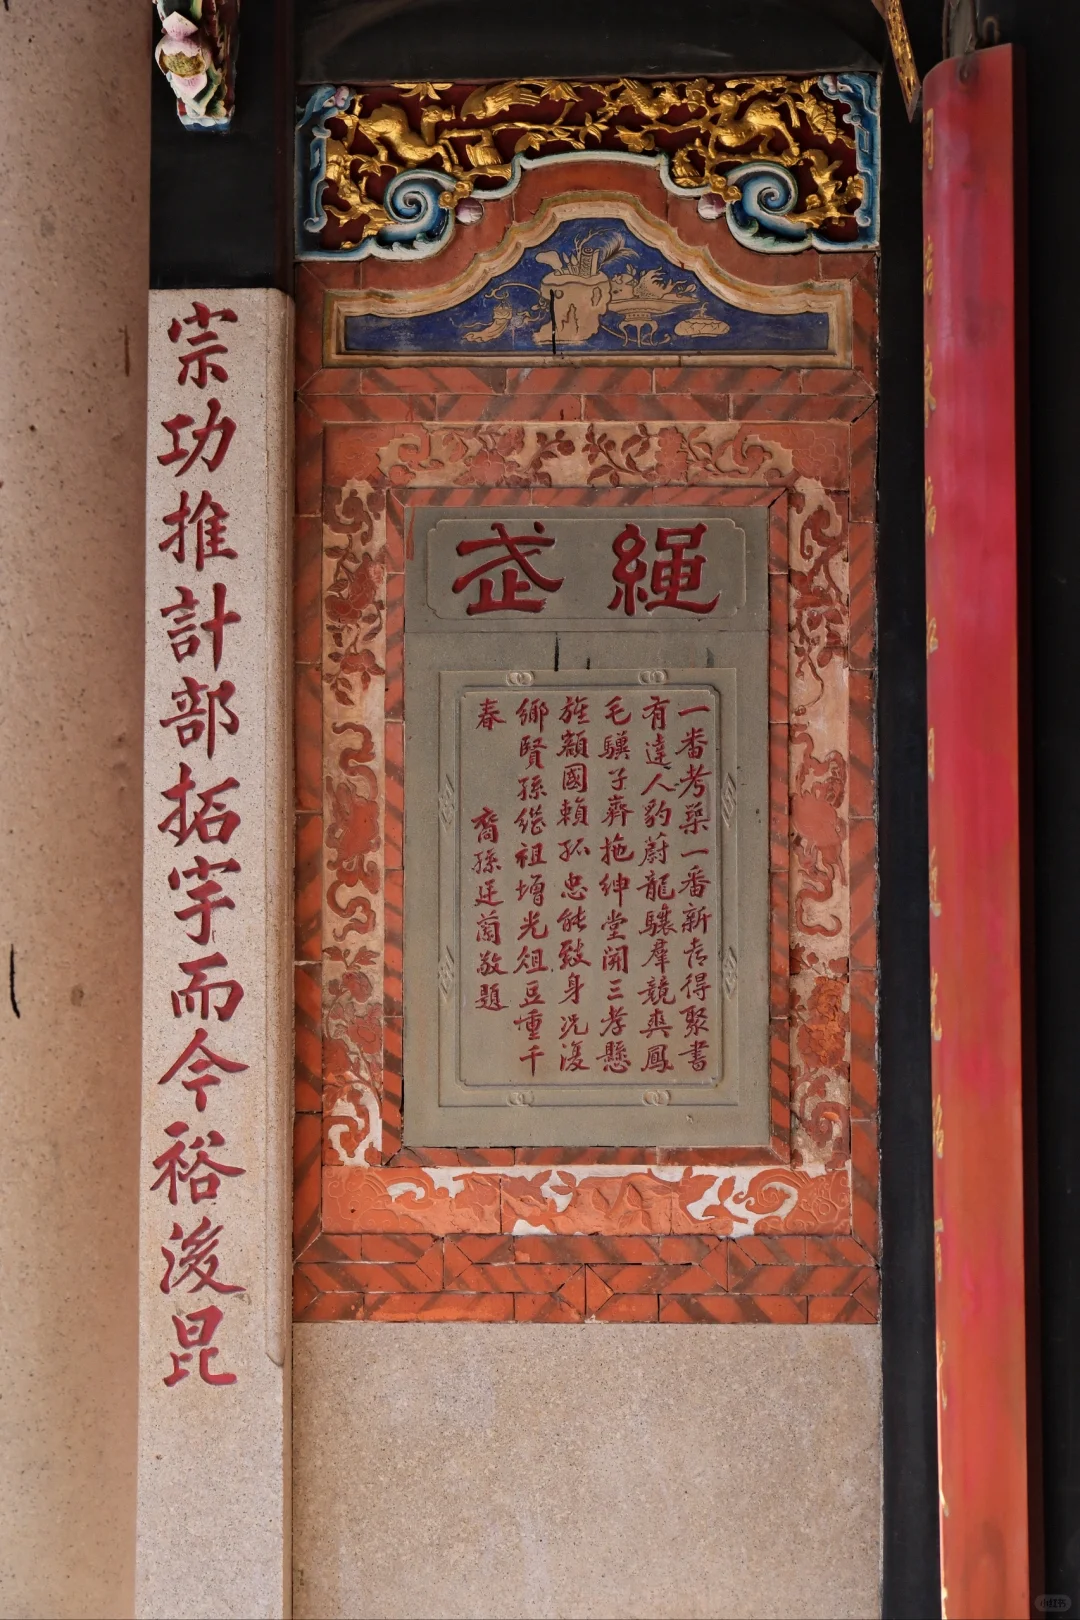 繩武
一番考築一番新喜得聚書
有達人豹蔚龍驤羣競爽鳳
毛驥子齊拖紳堂開三孝懸
旌額國賴孤忠能致身況復
鄉賢孫繼祖增光俎豆重千
春
裔孫廷蘭敬題
宗功推計部拓宇而今裕後昆